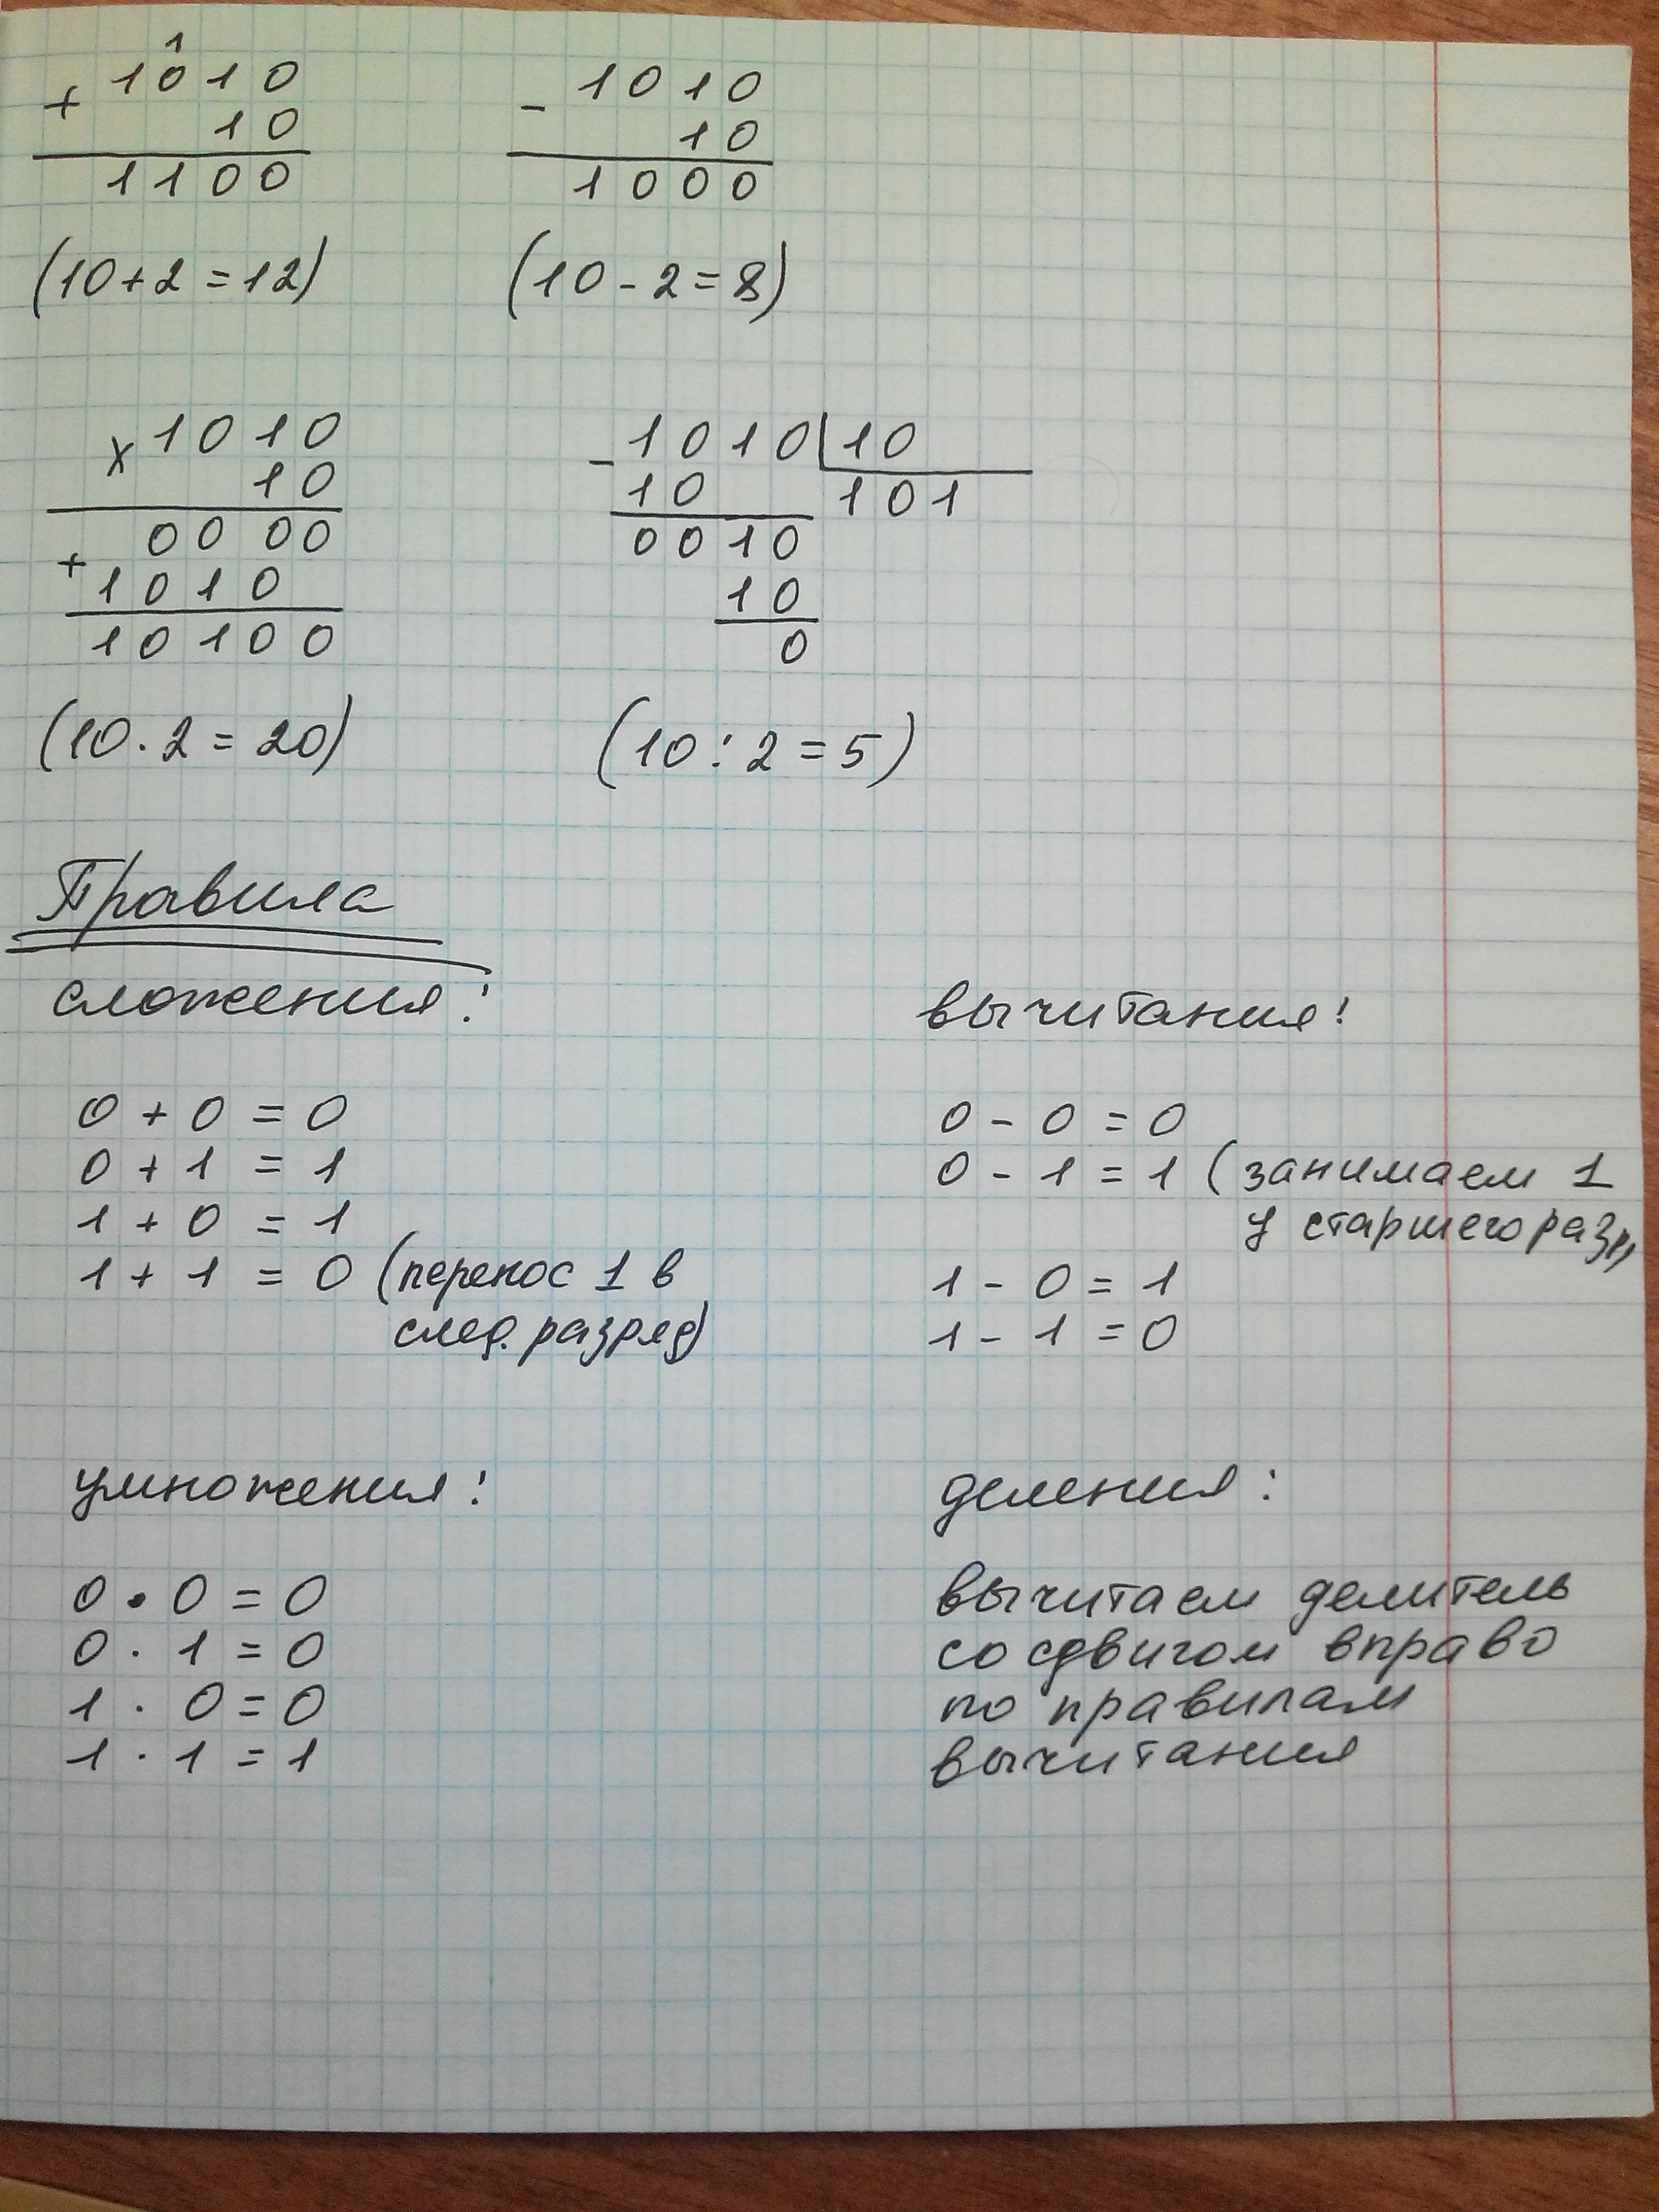 1
+ 1010 - 1010
10 10
1100 1000
(10+2=12) (10-2=8)
x 1010 - 1010 | 10
10 10 101
0000 0010
+ 1010 10
10100 0
(10·2=20) (10:2=5)
Правила
сложения:
0+0=0
0+1=1
1+0=1
1+1=0 (перенос 1 в
след. разряд)
вычитания:
0-0=0
0-1=1 (занимаем 1
у старшего разр,
1-0=1
1-1=0
умножения:
0·0=0
0·1=0
1·0=0
1·1=1
деления:
вычитаем делитель
со сдвигом вправо
по правилам
вычитания